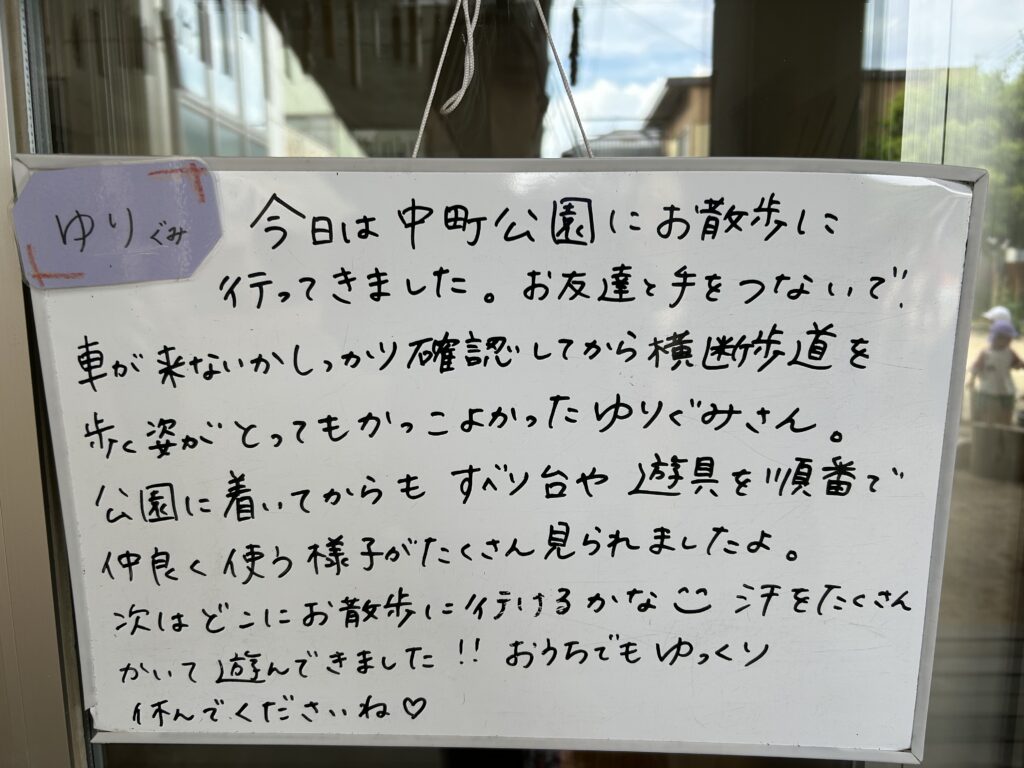 ゆりぐみ
今日は中町公園にお散歩に
行ってきました。お友達と手をつないで、
車が来ないかしっかり確認してから横断歩道を
歩く姿がとってもかっこよかったゆりぐみさん。
公園に着いてからもすべり台や遊具を順番で
仲良く使う様子がたくさん見られましたよ。
次はどこにお散歩に行けるかな 汗をたくさん
かいて遊んできました!! おうちでもゆっくり
休んでくださいね♡